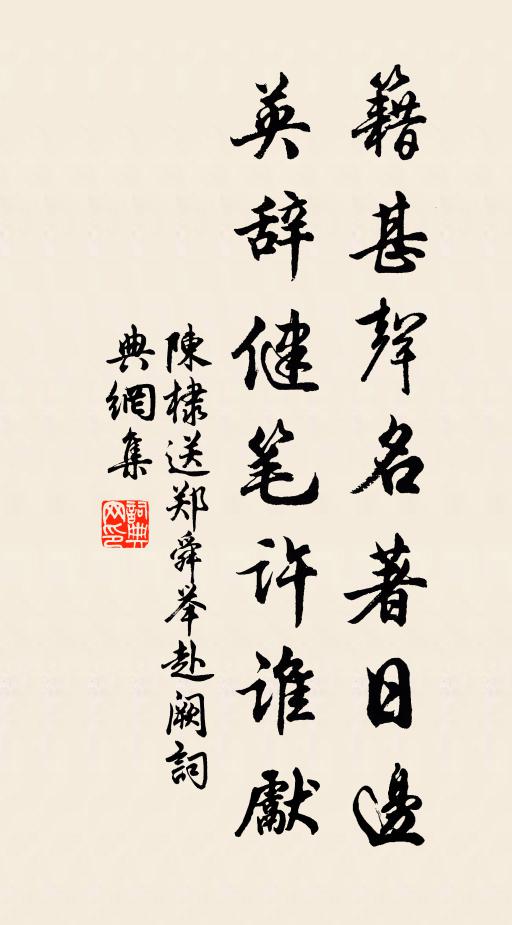 籍甚聲名著日邊
英辞健笔许谁獻
陳棣送郑舜举赴阙詞
典網集
詞典网印